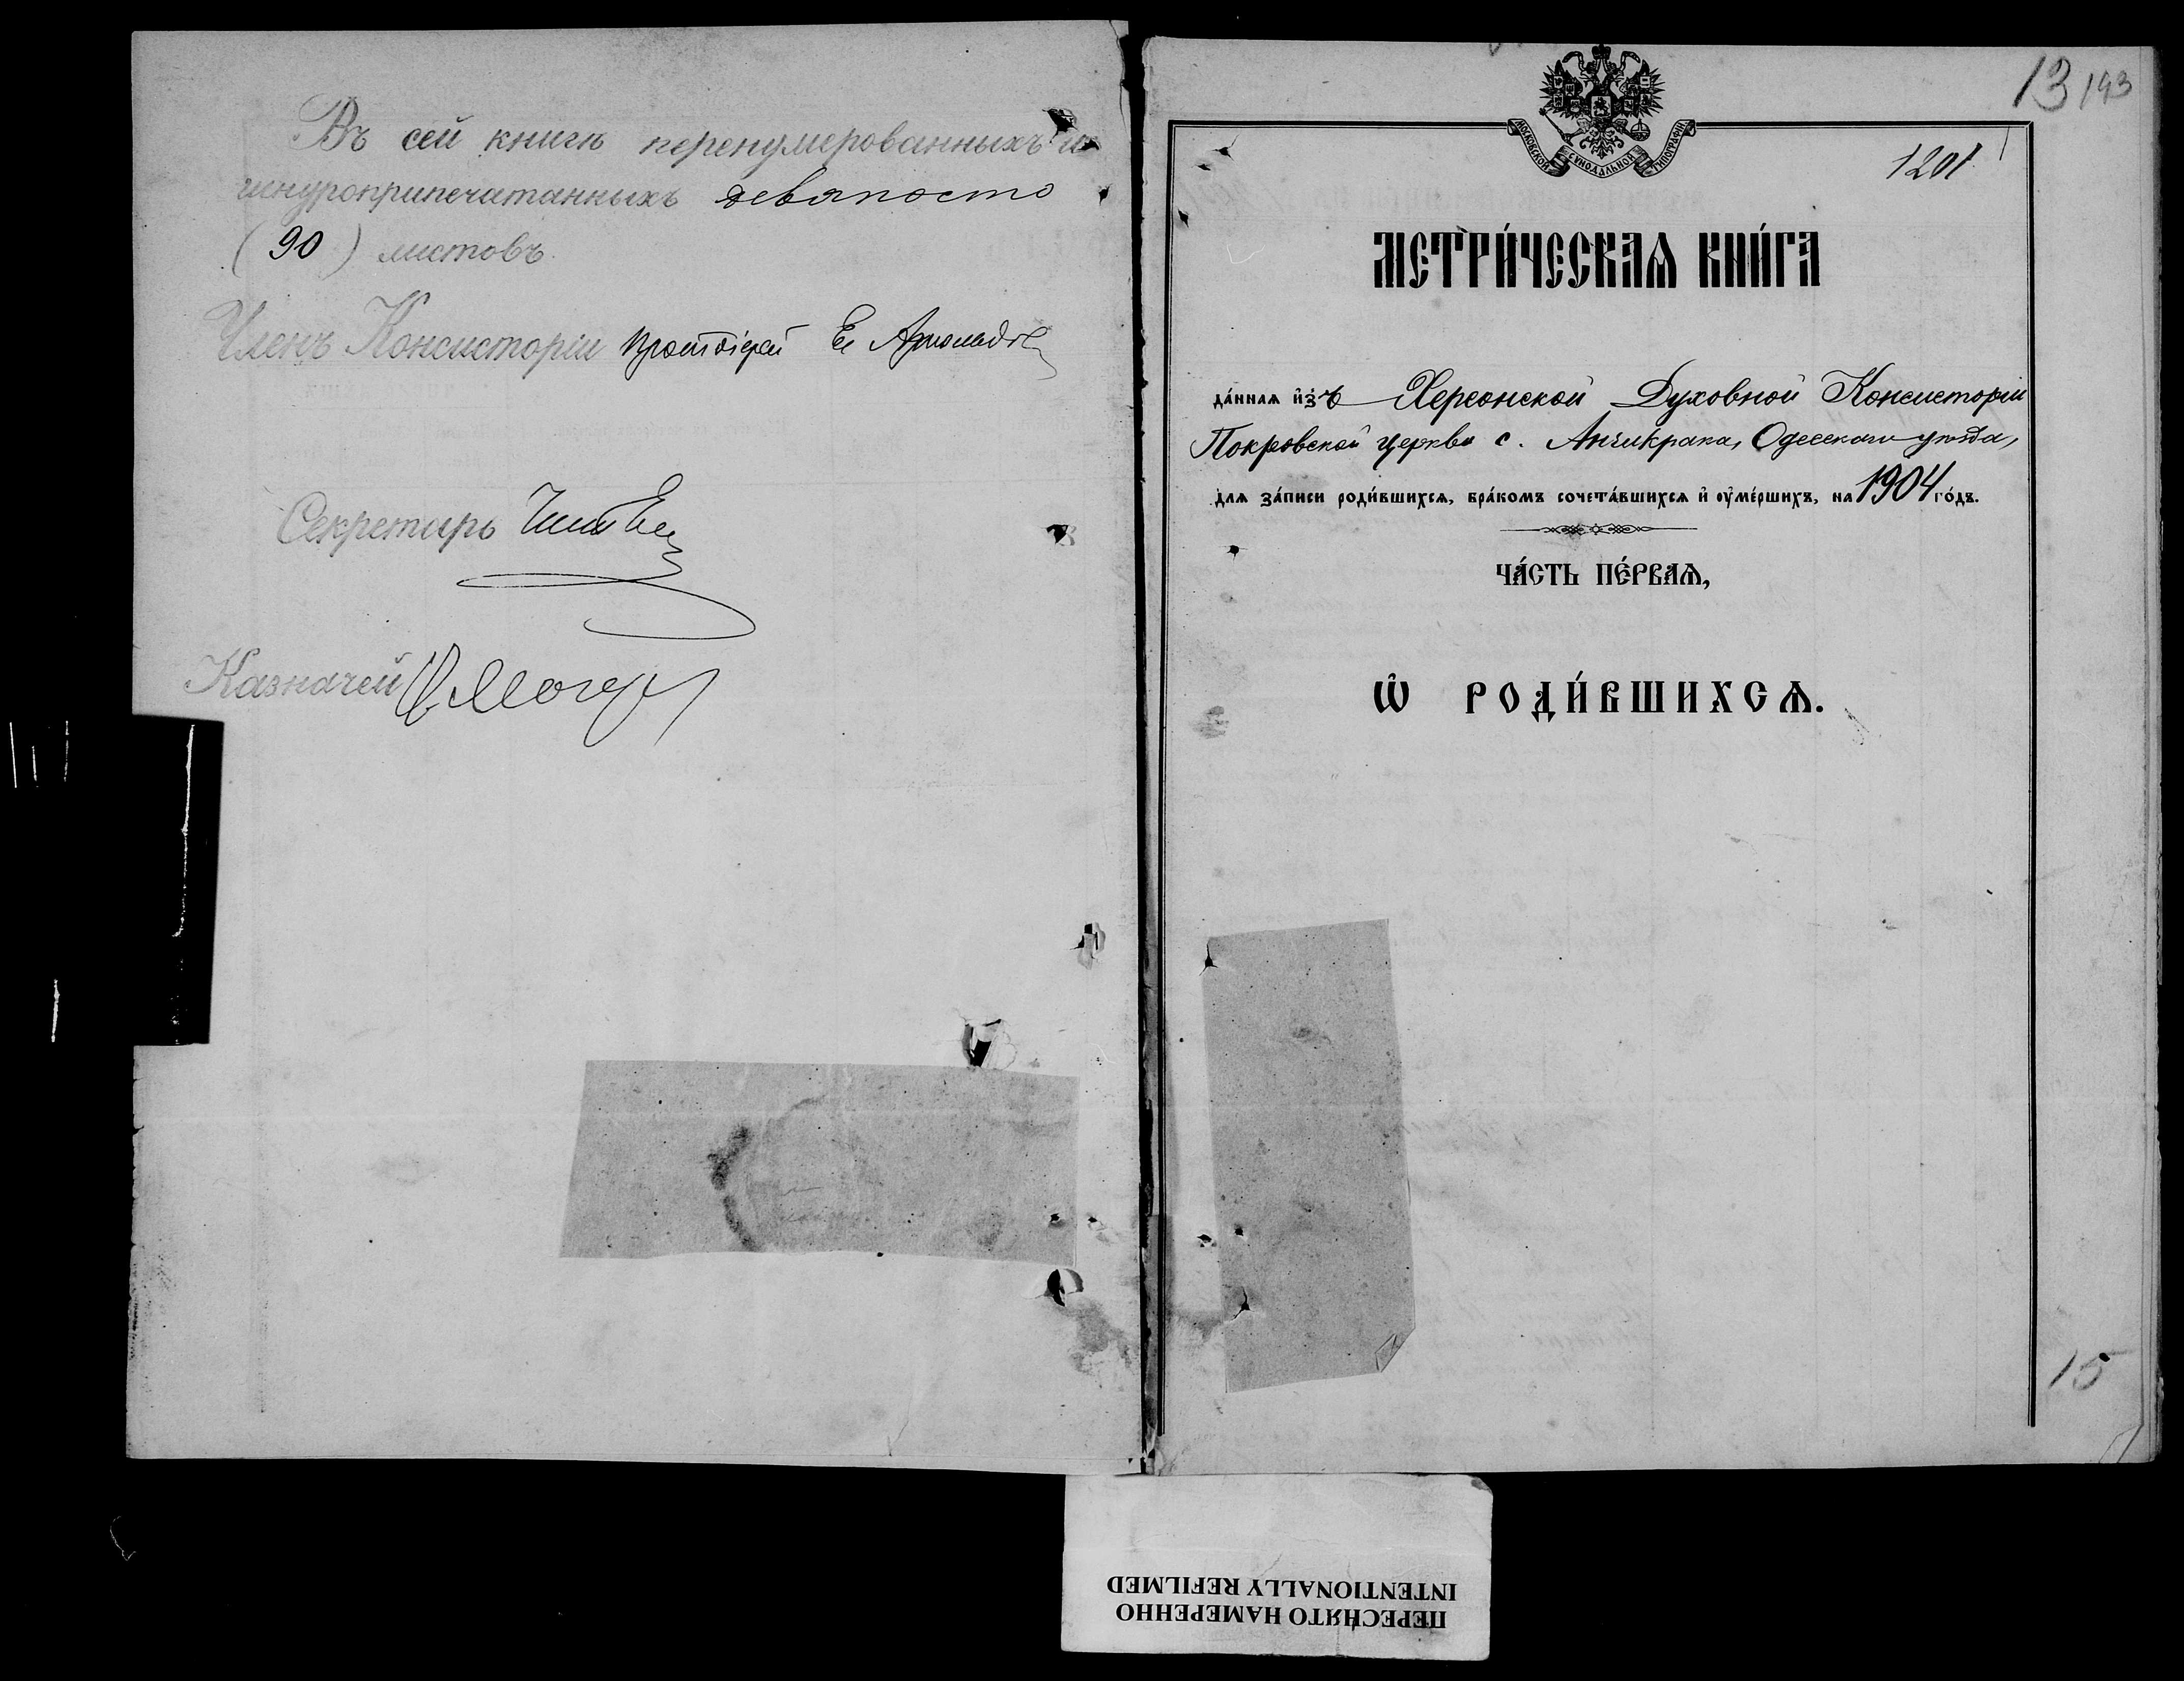 Въ сей книгѣ перенумерованныхъ и
шнуроприпечатанныхъ девяносто
(90) листовъ.
Членъ Консисторіи Протоіерей
Секретарь
Казначей
13 193
МОСКОВСКОЙ СѴНОДАЛЬНОЙ ТИПОГРАФІИ
1201
МЕТРИ́ЧЕСКАѦ КНИ́ГА
да́ннаѧ и҆зъ Херсонской Духовной Консисторіи
Покровской церкви с. Анчикрака, Одесскаго уѣзда,
для за́писи роди́вшихсѧ, бра́комъ сочета́вшихсѧ и҆ оу҆ме́ршихъ, на 1904 го́дъ.
ЧА́СТЬ ПЕ́РВАѦ,
Ѡ҆ РОДИ́ВШИХСѦ.
15
ПЕРЕСНЯТО НАМЕРЕННО
INTENTIONALLY REFILMED